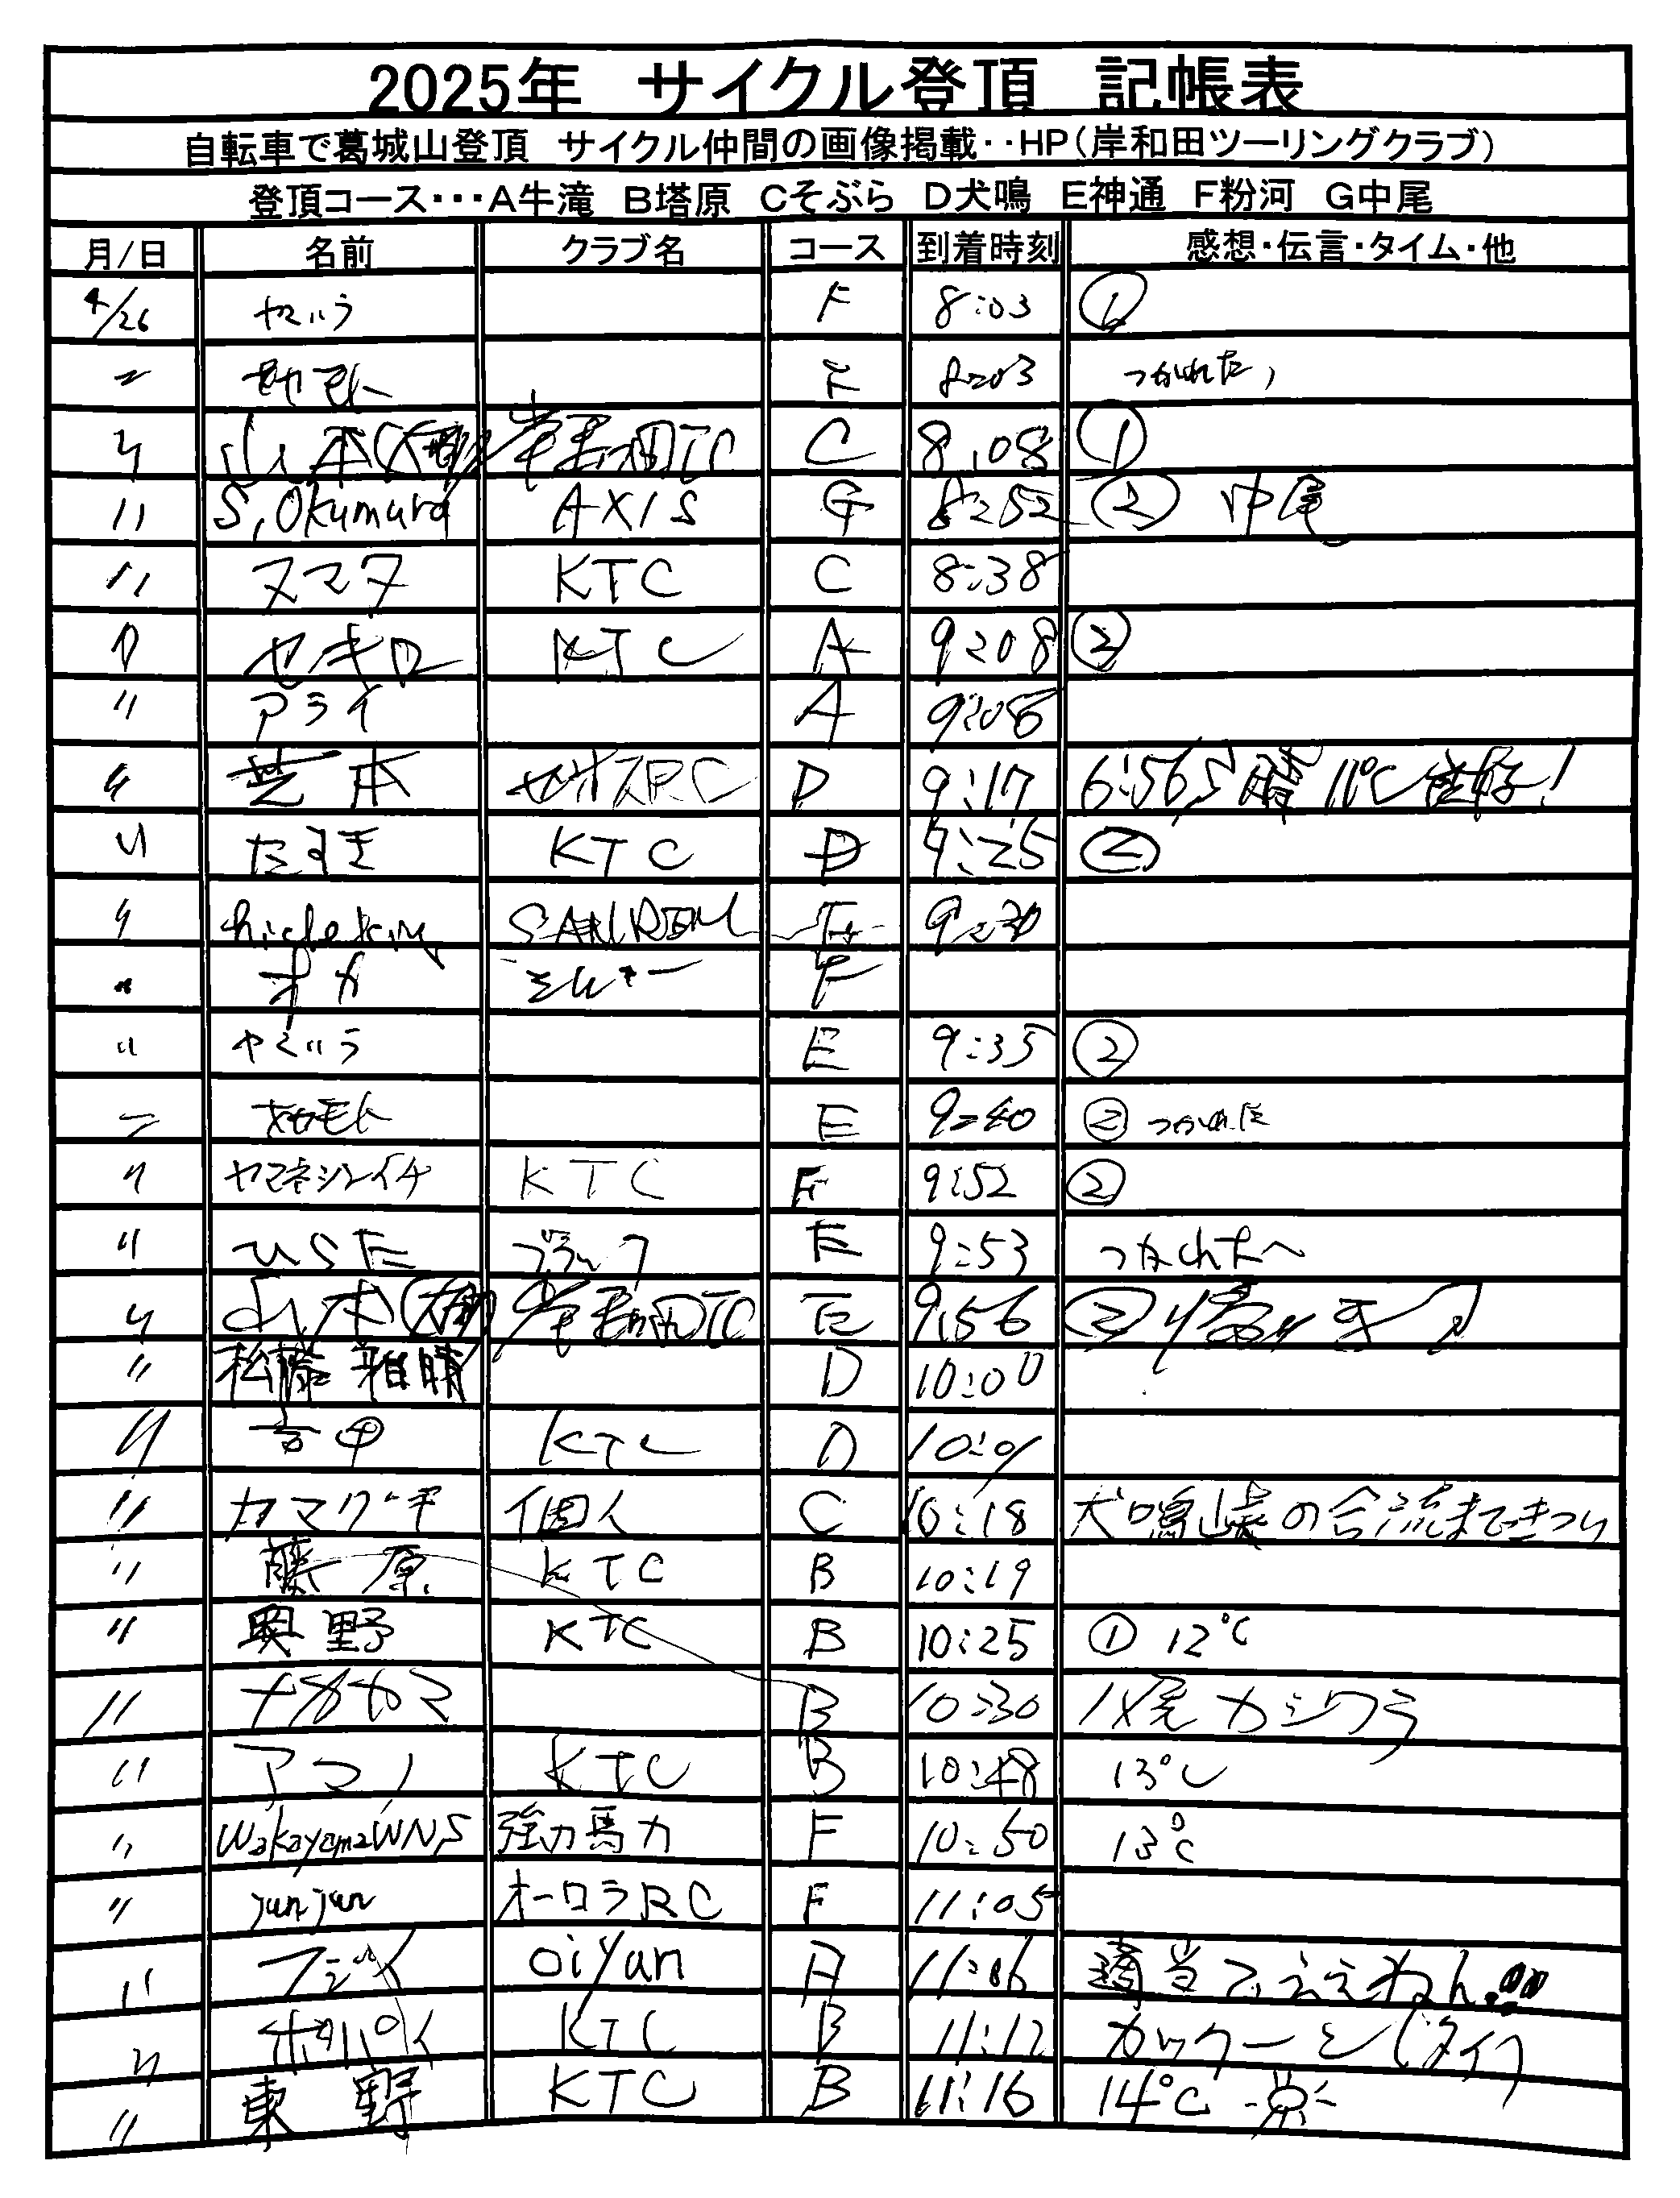 2025年 サイクル登頂 記帳表
自転車で葛城山登頂 サイクル仲間の画像掲載‥HP(岸和田ツーリングクラブ)
登頂コース･･･A牛滝 B塔原 Cそぶら D犬鳴 E神通 F粉河 G中尾
月/日 名前 クラブ名 コース 到着時刻 感想・伝言・タイム・他
4/26 F 8:03 ①
〃 F 8:03 つかれた,
〃 山本 岸和田TC C 8:08 ①
〃 S.Okumura AXIS G 8:52 ② 中尾
〃 ヌマタ KTC C 8:38
〃 セキロ KTC A 9:08 ②
〃 アライ A 9:06
〃 芝本 D 9:17 晴 11℃
〃 たすき KTC D 9:25 ②
〃 F
〃 オカ F
〃 E 9:35 ②
〃 E 9:40 ② つかれた
〃 ヤマネシンイチ KTC F 9:52 ②
〃 ひらた E 9:53 つかれたへ
〃 山本 岸和田TC E 9:56 ②
〃 松藤 雅晴 D 10:00
〃 KTC D 10:01
〃 カマグチ 個人 C 10:18 犬鳴峠の合流まできつい
〃 藤原 KTC B 10:19
〃 奥野 KTC B 10:25 ① 12℃
〃 ナカカマ B 10:30
〃 アマノ KTC B 10:48 13℃
〃 WakayamaWNS 強力馬力 F 10:50 13℃
〃 junjun オーロラRC F 11:05
〃 フジイ oiyan A 11:06 適当でええねん!!
〃 KTC B 11:12
〃 東野 KTC B 11:16 14℃